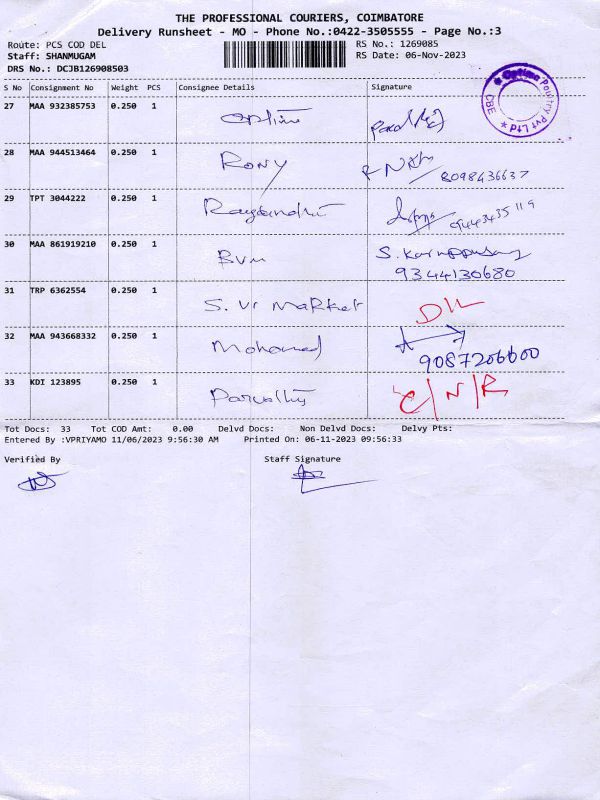 THE PROFESSIONAL COURIERS, COIMBATORE
Delivery Runsheet - MO - Phone No.:0422-3505555 - Page No.:3
Route: PCS COD DEL
RS No.: 1269085
Staff: SHANMUGAM
RS Date: 06-Nov-2023
DRS No.: DCJB126908503
* Optima Poultry Pvt Ltd * CBE
S No Consignment No Weight PCS Consignee Details Signature
27 MAA 932385753 0.250 1 Optima
28 MAA 944513464 0.250 1 Rony 8098436637
29 TPT 3044222 0.250 1 9443435119
30 MAA 861919210 0.250 1 Bvm S. Karuppusamy
9344130680
31 TRP 6362554 0.250 1 S. Vr Market D/L
32 MAA 943668332 0.250 1 Mohamed
9087206600
33 KDI 123895 0.250 1 Parvathy C/N/R
Tot Docs: 33 Tot COD Amt: 0.00 Delvd Docs: Non Delvd Docs: Delvy Pts:
Entered By :VPRIYAMO 11/06/2023 9:56:30 AM Printed On: 06-11-2023 09:56:33
Verified By Staff Signature